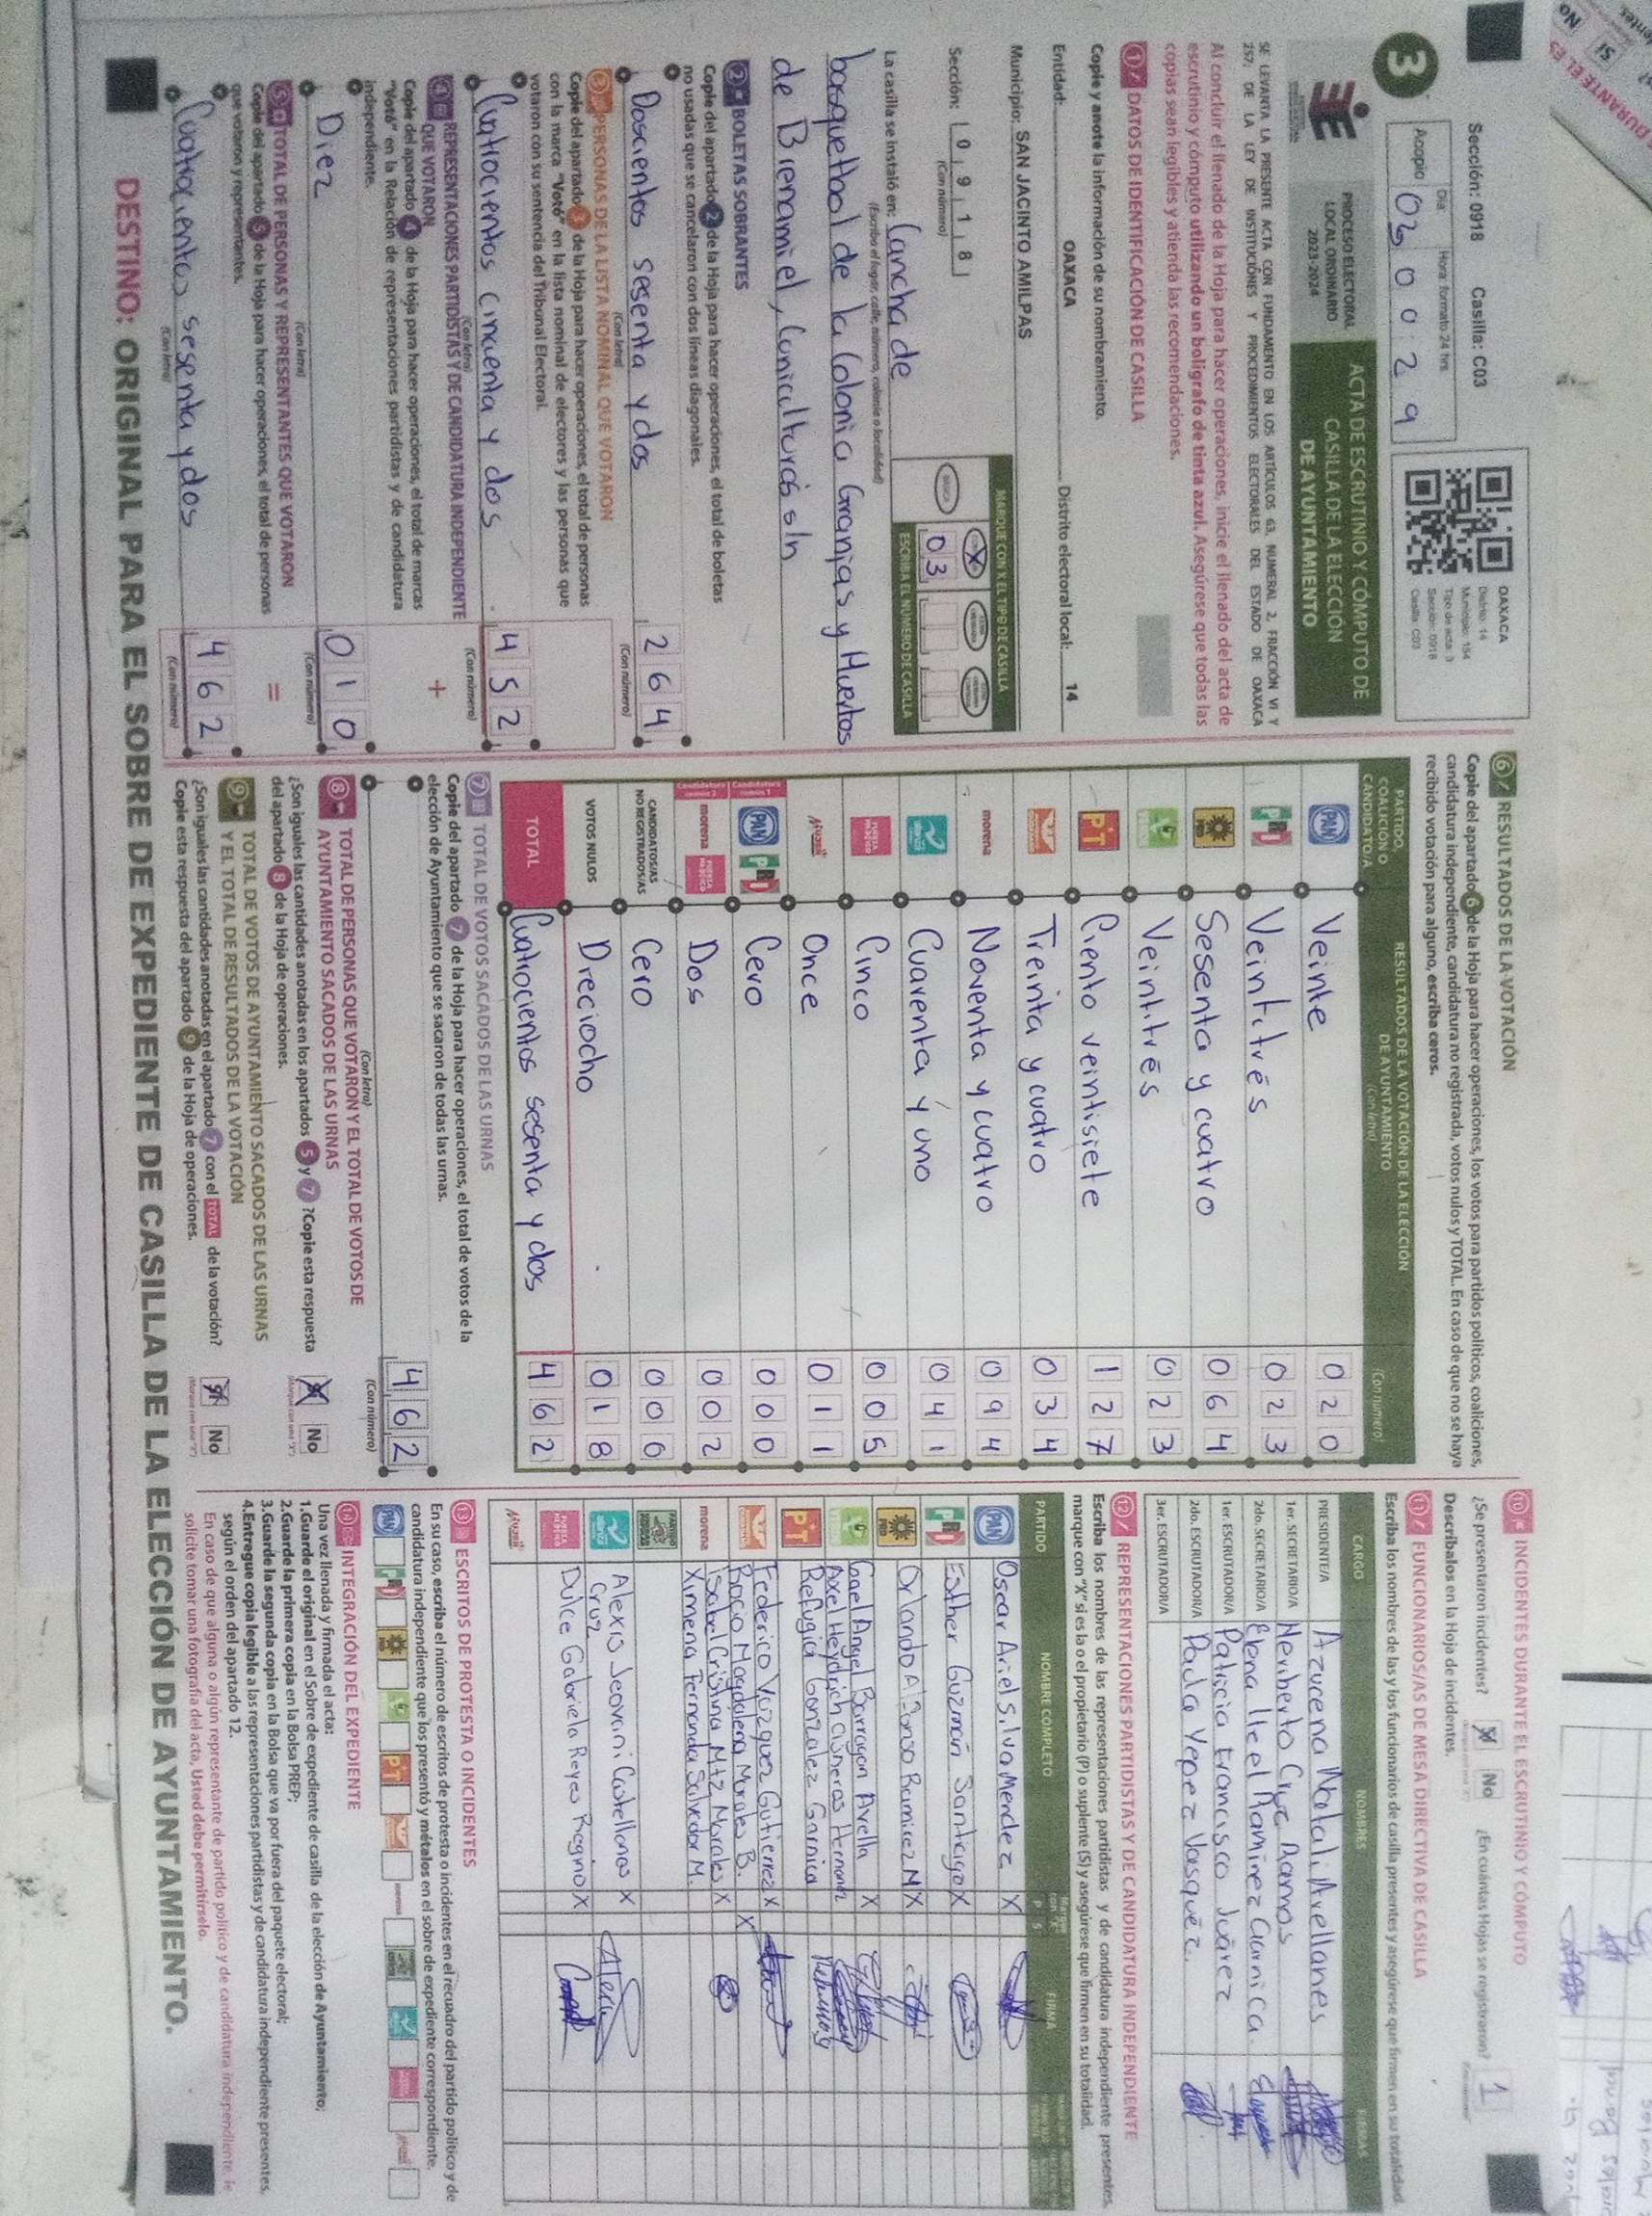 Sección: 0918 Casilla: C03
OAXACA
Distrito: 14
Municipio: 154
Tipo de acta: 3
Sección: 0918
Casilla: C03
3
Acopio
Día
Hora: formato 24 hrs
02 00:29
PROCESO ELECTORAL
LOCAL ORDINARIO
2023-2024
ACTA DE ESCRUTINIO Y CÓMPUTO DE
CASILLA DE LA ELECCIÓN
DE AYUNTAMIENTO
SE LEVANTA LA PRESENTE ACTA CON FUNDAMENTO EN LOS ARTÍCULOS 63, NUMERAL 2, FRACCIÓN VI Y
257, DE LA LEY DE INSTITUCIONES Y PROCEDIMIENTOS ELECTORALES DEL ESTADO DE OAXACA
Al concluir el llenado de la Hoja para hacer operaciones, inicie el llenado del acta de
escrutinio y cómputo utilizando un bolígrafo de tinta azul. Asegúrese que todas las
copias sean legibles y atienda las recomendaciones.
1 DATOS DE IDENTIFICACIÓN DE CASILLA
Copie y anote la información de su nombramiento.
Entidad: OAXACA Distrito electoral local: 14
Municipio: SAN JACINTO AMILPAS
Sección: 0918
(Con número)
MARQUE CON X EL TIPO DE CASILLA
X
ESCRIBA EL NÚMERO DE CASILLA
03
La casilla se instaló en: Cancha de
(Escriba el lugar, calle, número, colonia o localidad)
basquetbol de la Colonia Granjas y Huertos
de Brenamiel, Conicalturas s/n
2 BOLETAS SOBRANTES
Copie del apartado 2 de la Hoja para hacer operaciones, el total de boletas
no usadas que se cancelaron con dos líneas diagonales.
Doscientos sesenta y dos 264
(Con letra) (Con número)
3 PERSONAS DE LA LISTA NOMINAL QUE VOTARON
Copie del apartado 3 de la Hoja para hacer operaciones, el total de personas
con la marca "Votó" en la lista nominal de electores y las personas que
votaron con su sentencia del Tribunal Electoral.
Cuatrocientos cincuenta y dos 452
(Con letra) (Con número)
4 REPRESENTACIONES PARTIDISTAS Y DE CANDIDATURA INDEPENDIENTE
QUE VOTARON
Copie del apartado 4 de la Hoja para hacer operaciones, el total de marcas
"Votó" en la Relación de representaciones partidistas y de candidatura
independiente.
+
Diez 010
(Con letra) (Con número)
5 TOTAL DE PERSONAS Y REPRESENTANTES QUE VOTARON
Copie del apartado 5 de la Hoja para hacer operaciones, el total de personas
que votaron y representantes.
=
Cuatrocientos sesenta y dos 462
(Con letra) (Con número)
6 RESULTADOS DE LA VOTACIÓN
Copie del apartado 6 de la Hoja para hacer operaciones, los votos para partidos políticos, coaliciones,
candidatura independiente, candidatura no registrada, votos nulos y TOTAL. En caso de que no se haya
recibido votación para alguno, escriba ceros.
PARTIDO,
COALICIÓN O
CANDIDATO/A
RESULTADOS DE LA VOTACIÓN DE LA ELECCIÓN
DE AYUNTAMIENTO
(Con letra)
(Con número)
PAN Veinte 020
PRI Veintitrés 023
PRD Sesenta y cuatro 064
Veintitrés 023
PT Ciento veintisiete 127
Treinta y cuatro 034
morena Noventa y cuatro 094
Cuarenta y uno 041
FUERZA MÉXICO Cinco 005
Once 011
PAN PRI Cero 000
morena FUERZA MÉXICO Dos 002
CANDIDATOS/AS
NO REGISTRADOS/AS Cero 000
VOTOS NULOS Dieciocho 018
TOTAL Cuatrocientos sesenta y dos 462
7 TOTAL DE VOTOS SACADOS DE LAS URNAS
Copie del apartado 7 de la Hoja para hacer operaciones, el total de votos de la
elección de Ayuntamiento que se sacaron de todas las urnas.
462
(Con letra) (Con número)
8 TOTAL DE PERSONAS QUE VOTARON Y EL TOTAL DE VOTOS DE
AYUNTAMIENTO SACADOS DE LAS URNAS
¿Son iguales las cantidades anotadas en los apartados 5 y 7? Copie esta respuesta
del apartado 8 de la Hoja de operaciones.
Sí No
9 TOTAL DE VOTOS DE AYUNTAMIENTO SACADOS DE LAS URNAS
Y EL TOTAL DE RESULTADOS DE LA VOTACIÓN
¿Son iguales las cantidades anotadas en el apartado 7 con el TOTAL de la votación?
Copie esta respuesta del apartado 9 de la Hoja de operaciones.
Sí No
10 INCIDENTES DURANTE EL ESCRUTINIO Y CÓMPUTO
¿Se presentaron incidentes? Sí No ¿En cuántas Hojas se registraron? 1
Descríbalos en la Hoja de incidentes.
11 FUNCIONARIOS/AS DE MESA DIRECTIVA DE CASILLA
Escriba los nombres de las y los funcionarios de casilla presentes y asegúrese que firmen en su totalidad.
CARGO NOMBRES FIRMAS
PRESIDENTE/A Azucena Natali Avellanes
1er. SECRETARIO/A Heriberto Cruz Ramos
2do. SECRETARIO/A Elena Itzel Ramirez Guanica
1er. ESCRUTADOR/A Patricia Francisco Juárez
2do. ESCRUTADOR/A Paula Yepez Vasquez.
3er. ESCRUTADOR/A
12 REPRESENTACIONES PARTIDISTAS Y DE CANDIDATURA INDEPENDIENTE
Escriba los nombres de las representaciones partidistas y de candidatura independiente presentes,
marque con "X" si es la o el propietario (P) o suplente (S) y asegúrese que firmen en su totalidad.
PARTIDO NOMBRE COMPLETO P S FIRMA
PAN Oscar Ariel Silva Mendez X
PRI Esther Guzmán Santiago X
PRD Orlando Alfonso Ramirez M X
Gael Angel Barragan Avella X
Axel Heydrich Cisneros Hernandez
PT Refugia Gonzalez Garnica
Federico Vazquez Gutierrez X
Rocio Magdalena Morales B. X
morena Isabel Cristina Mtz Morales X
Ximena Fernanda Salvador M.
Alexis Jeovani Castellanos X
Cruz
FUERZA MÉXICO Dulce Gabriela Reyes Regino X
13 ESCRITOS DE PROTESTA O INCIDENTES
En su caso, escriba el número de escritos de protesta o incidentes en el recuadro del partido político y de
candidatura independiente que los presentó y métalos en el sobre de expediente correspondiente.
14 INTEGRACIÓN DEL EXPEDIENTE
Una vez llenada y firmada el acta:
1.Guarde el original en el Sobre de expediente de casilla de la elección de Ayuntamiento;
2.Guarde la primera copia en la Bolsa PREP;
3.Guarde la segunda copia en la Bolsa que va por fuera del paquete electoral;
4.Entregue copia legible a las representaciones partidistas y de candidatura independiente presentes,
según el orden del apartado 12.
En caso de que alguna o algún representante de partido político y de candidatura independiente, le
solicite tomar una fotografía del acta, Usted debe permitírselo.
DESTINO: ORIGINAL PARA EL SOBRE DE EXPEDIENTE DE CASILLA DE LA ELECCIÓN DE AYUNTAMIENTO.